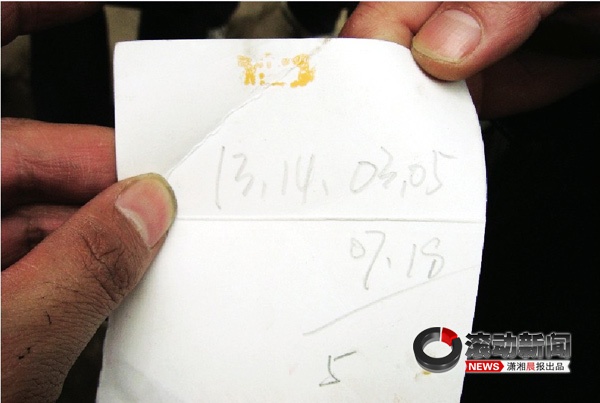 13.14.03.05
07.18
5
滚动新闻
NEWS 潇湘晨报出品